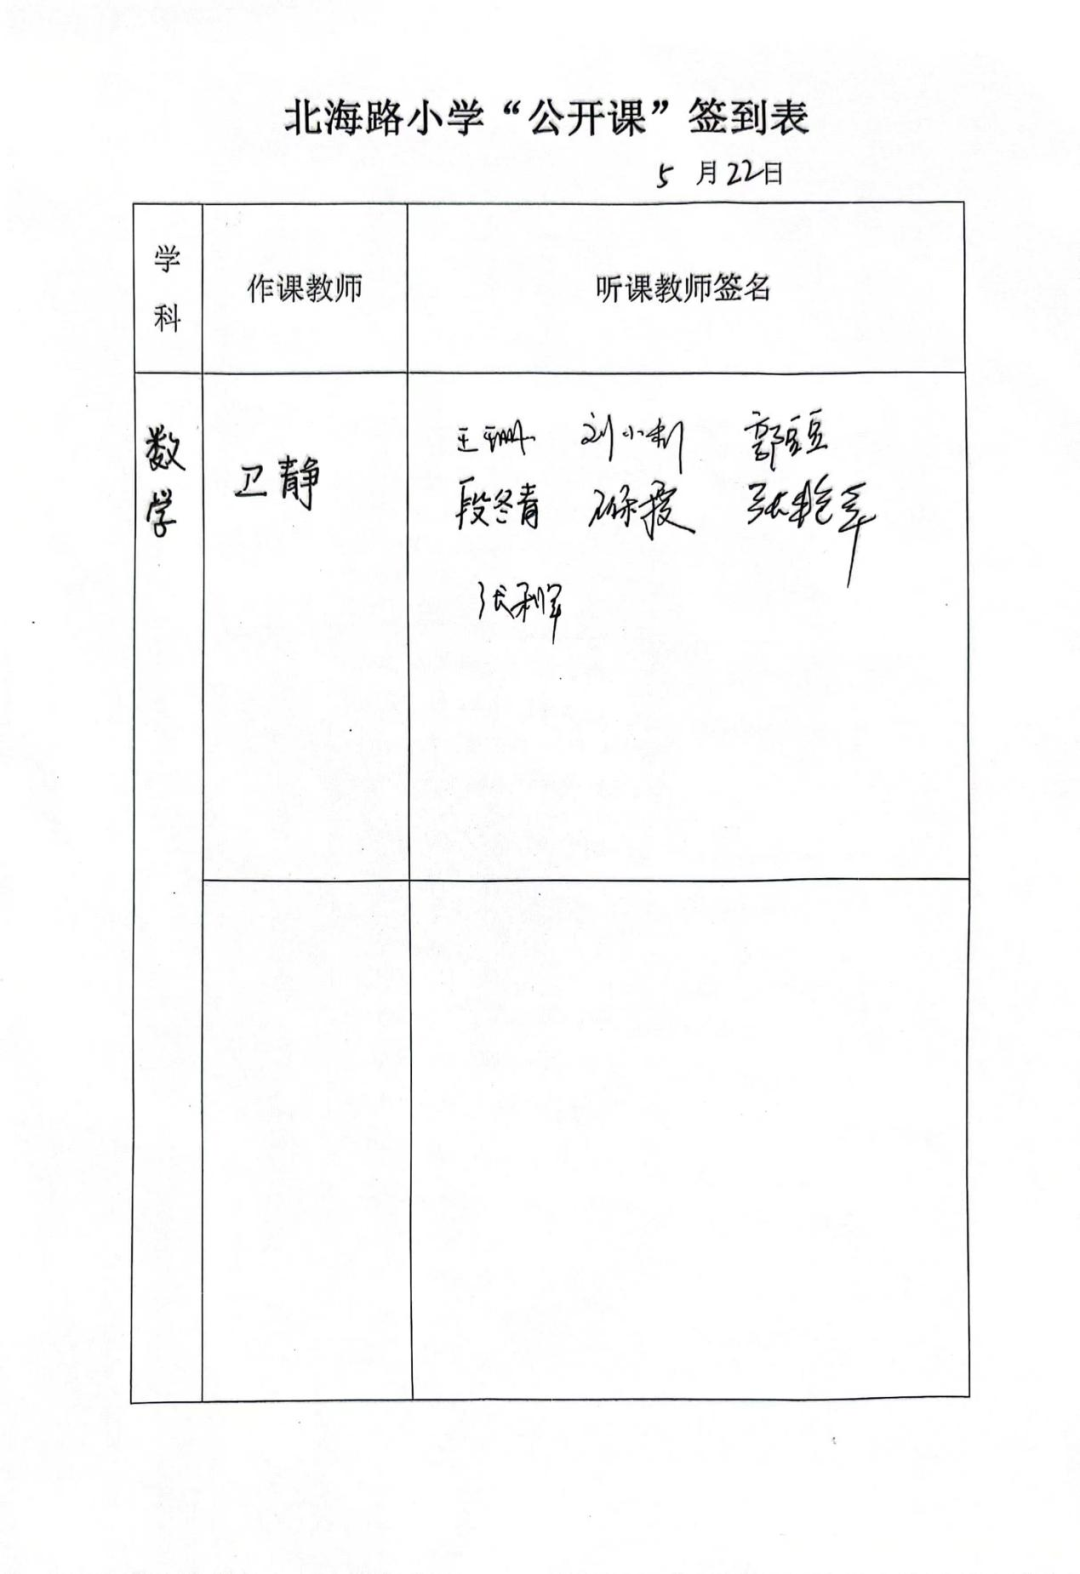 北海路小学“公开课”签到表
5月22日
学科
作课教师
听课教师签名
数学
卫静
王珊 刘小利 郭豆豆
段冬青 张艳军
张利军